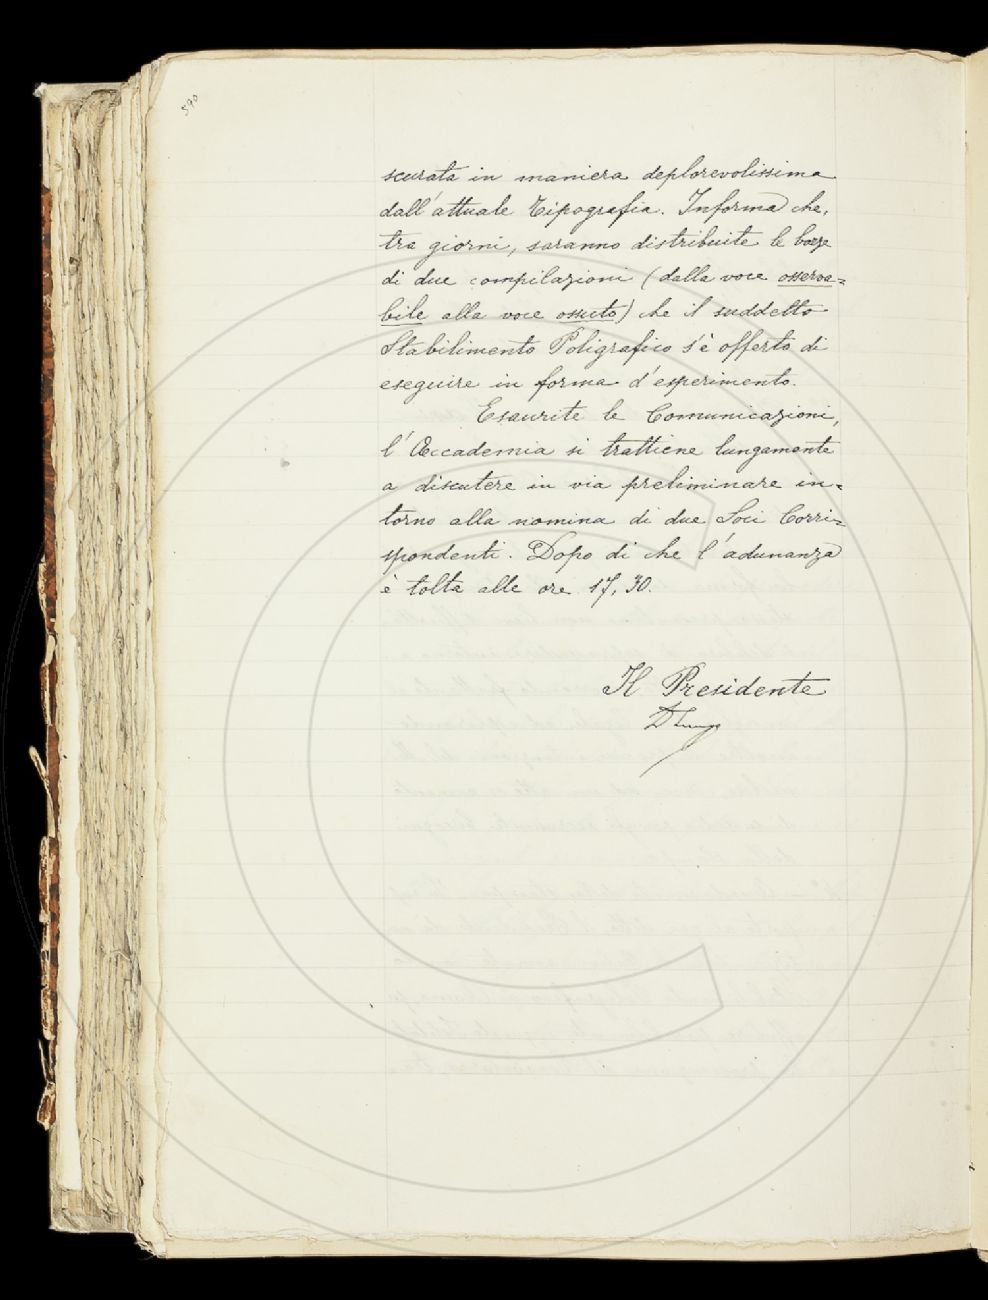 590
scurata in maniera deplorevolissima
dall'attuale Tipografia. Informa che,
tra giorni, saranno distribuite le bozze
di due compilazioni (dalla voce osserva=
bile alla voce ossuto) che il suddetto
Stabilimento Poligrafico s'è offerto di
eseguire in forma d'esperimento.
Esaurite le Comunicazioni,
l'Accademia si trattiene lungamente
a discutere in via preliminare in=
torno alla nomina di due Soci Corri=
spondenti. Dopo di che l'adunanza
è tolta alle ore 17,30.
Il Presidente